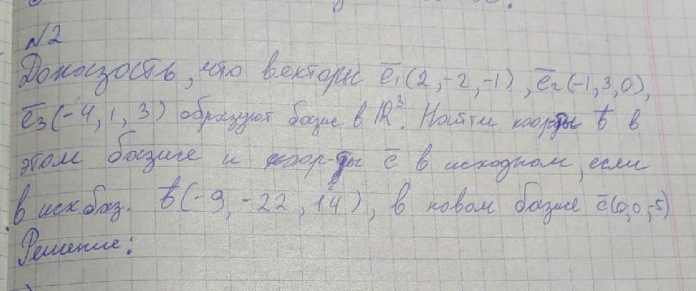 №2
Доказать, что векторы e̅₁(2, -2, -1), e̅₂(-1, 3, 0),
e̅₃(-4, 1, 3) образуют базис в ℝ³. Найти коор-ты b̅ в
этом базисе и коор-ты c̅ в исходном, если
в исх.баз. b̅(-9, -22, 14), в новом базисе c̅(0,0,-5)
Решение: